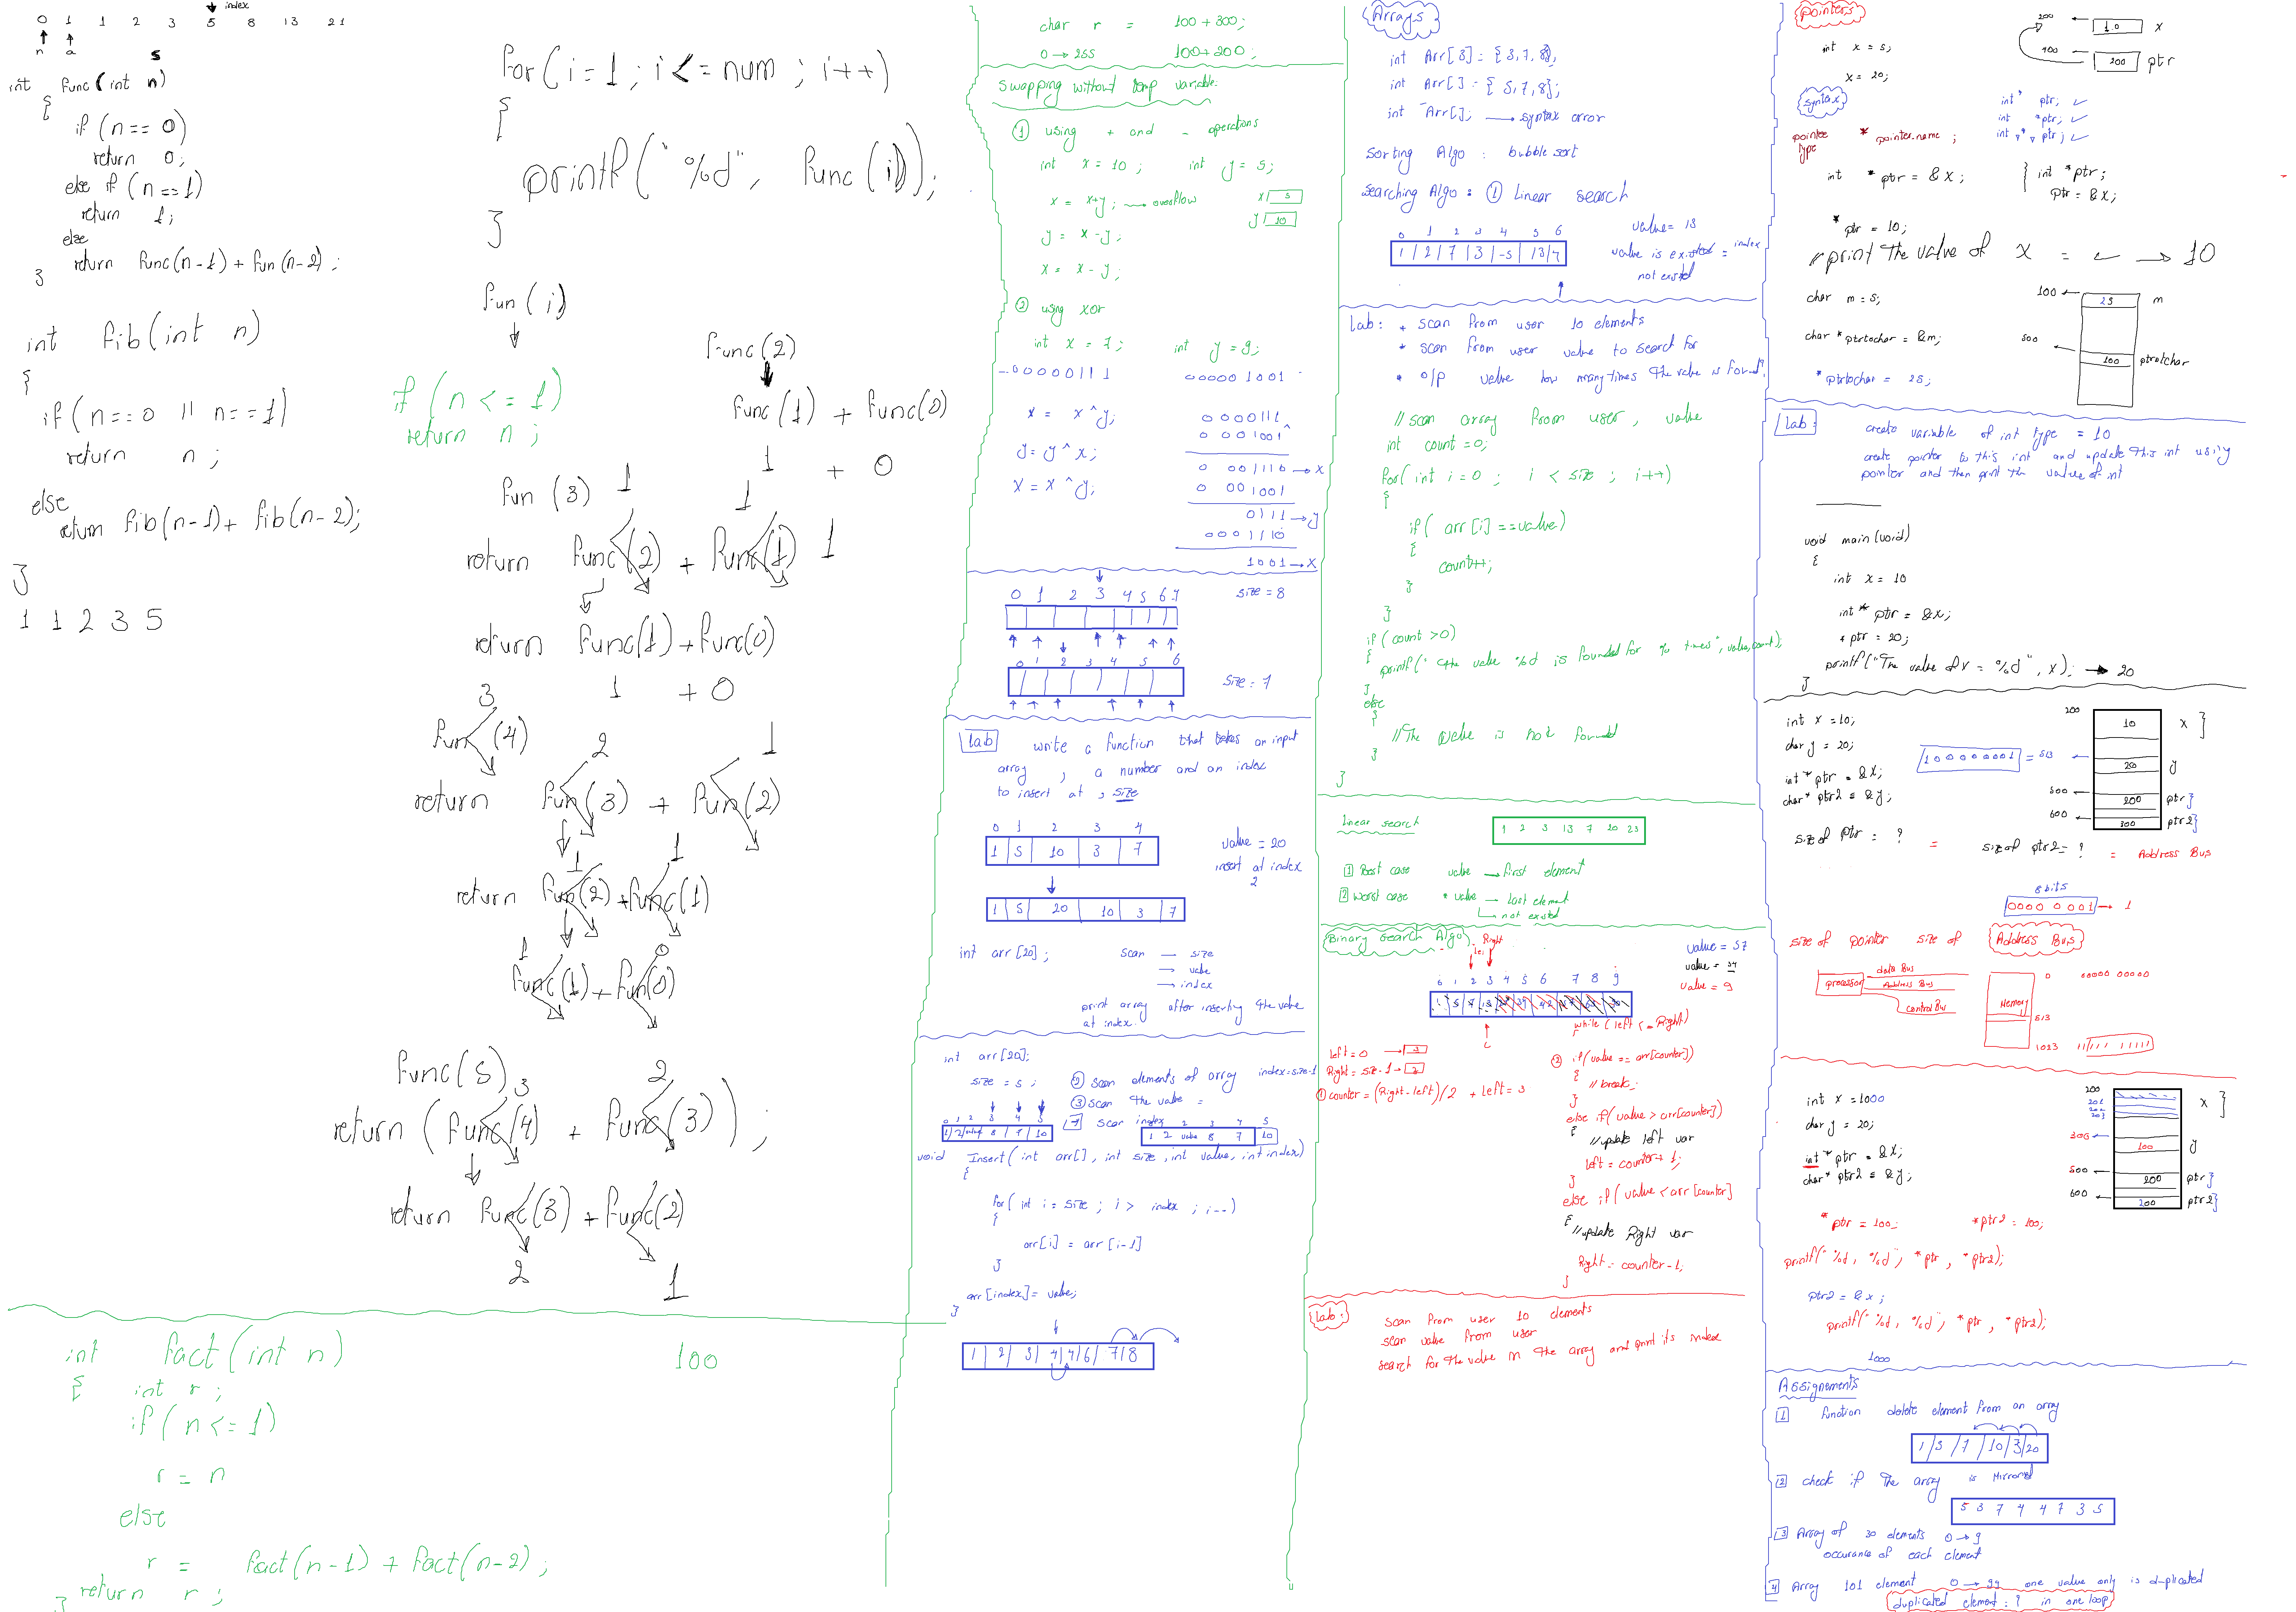 index
0 1 1 2 3 5 8 13 21
n a
5
int func(int n)
{
if (n == 0)
return 0;
else if (n == 1)
return 1;
else
return func(n-1) + fun(n-2);
}
int fib(int n)
{
if (n==0 || n==1)
return n;
else
return fib(n-1) + fib(n-2);
}
1 1 2 3 5
for(i=1; i<=num; i++)
{
printf("%d", func(i));
}
fun(i)
if (n <= 1)
return n;
func(2)
func(1) + func(0)
1 + 0
1
fun (3) 1
return func(2) + func(1) 1
return func(1) + func(0)
3 1 + 0
fun (4) 2 1
return fun(3) + fun(2)
1 1
return fun(2) + func(1)
1 0
func(1) + fun(0)
func(5) 3 2
return (func(4) + func(3));
return func(3) + func(2)
2 1
int fact(int n) 100
{ int r;
if (n <= 1)
r = n
else
r = fact(n-1) + fact(n-2);
return r;
}
char r = 100 + 300;
0 → 255 100+200;
Swapping without temp variable
① using + and - operations
int x = 10; int y = 5;
x = x+y; → overflow x 5
y = x-y; y 10
x = x-y;
② using xor
int x = 7; int y = 9;
00000111 00001001
x = x ^ y; 0 000111
0 001001 ^
y = y ^ x; 0 001110 → x
x = x ^ y; 0 001001
0111 → y
0001110
1001 → x
0 1 2 3 4 5 6 7 size = 8
0 1 2 3 4 5 6 size = 7
Lab write a function that takes an input
array , a number and an index
to insert at , size
0 1 2 3 4
1 5 10 3 7 value = 20
insert at index
2
1 5 20 10 3 7
int arr[20]; scan → size
→ value
→ index
print array after inserting the value
at index.
int arr[20];
size = 5; ② scan elements of array index=size-1
③ scan the value =
scan index
0 1 2 3 4 5
1 2 value 8 7 10
2 3 4 5
1 2 value 8 7 10
void Insert( int arr[], int size, int value, int index)
{
for( int i = size ; i > index ; i--)
{
arr[i] = arr[i-1]
}
arr[index] = value;
}
1 2 3 4 4 6 7 8
Arrays
int Arr[3] = {3,7,8};
int Arr[] = {5,7,8};
int Arr[]; → syntax error
Sorting Algo : bubble sort
Searching Algo : ① Linear search
0 1 2 3 4 5 6 value = 13
1 2 7 3 -5 13 7 value is existed = index
not existed
Lab: * scan from user 10 elements
* scan from user value to search for
* o/p value how many times the value is found
// scan array from user, value
int count = 0;
for( int i = 0 ; i < size ; i++)
{
if( arr[i] == value)
{
count++;
}
}
if (count > 0)
{
printf(" the value %d is founded for % times", value, count);
}
else
{
// The value is not founded
}
}
linear search 1 2 3 13 7 20 23
1 Best case value → first element
2 worst case * value → last element
→ not existed
Binary search Algo
Right value = 57
value = 34
value = 9
0 1 2 3 4 5 6 7 8 9
while (left <= Right)
left = 0 → 3
Right = size-1 → 3
① counter = (Right-left)/2 + left = 3
② if(value == arr[counter])
{
// break;
}
else if(value > arr[counter])
{
// update left var
left = counter + 1;
}
else if( value < arr[counter]
{
// update Right var
Right = counter - 1;
}
Lab: scan from user 10 elements
scan value from user
search for the value in the array and print its index
pointers
200 10 x
int x = 5;
400 200 ptr
x = 20;
syntax int* ptr; ✓
int *ptr; ✓
int * ptr; ✓
pointee type * pointer_name ;
int *ptr = &x; { int *ptr;
ptr = &x;
*ptr = 10;
// print the value of x = ✓ → 10
char m = 5; 100 25 m
char * ptrtochar = &m; 500 100 ptrtochar
*ptrtochar = 25;
Lab: create variable of int type = 10
create pointer to this int and update this int using
pointer and then print the value of int
void main(void)
{
int x = 10
int* ptr = &x;
*ptr = 20;
printf("The value of x = %d", x); → 20
}
int x = 10; 200 10 x }
char y = 20; 100000001 = 513 20 y
int* ptr = &x; 500 200 ptr }
char* ptr2 = &y; 600 300 ptr2 }
size of ptr = ? = size of ptr2 = ? = Address Bus
8 bits
0000 0001 → 1
size of pointer size of Address Bus
processor data Bus
Address Bus
control Bus
Memory 0 00000 00000
513
1023 11111 11111
int x = 1000 200 x }
201
202
203
char y = 20; 300 100 y
int* ptr = &x; 500 200 ptr }
char* ptr2 = &y; 600 200 ptr2 }
*ptr = 100; *ptr2 = 100;
printf(" %d, %d", *ptr, *ptr2);
ptr2 = &x;
printf(" %d, %d", *ptr, *ptr2);
1000
Assignements
1 function delete element from an array
1 3 7 10 3 20
2 check if the array is Mirrored
5 3 7 4 4 7 3 5
3 Array of 30 elements 0 → 9
occurance of each element
4 Array 101 element 0 → 99 one value only is duplicated
duplicated element = ? in one loop